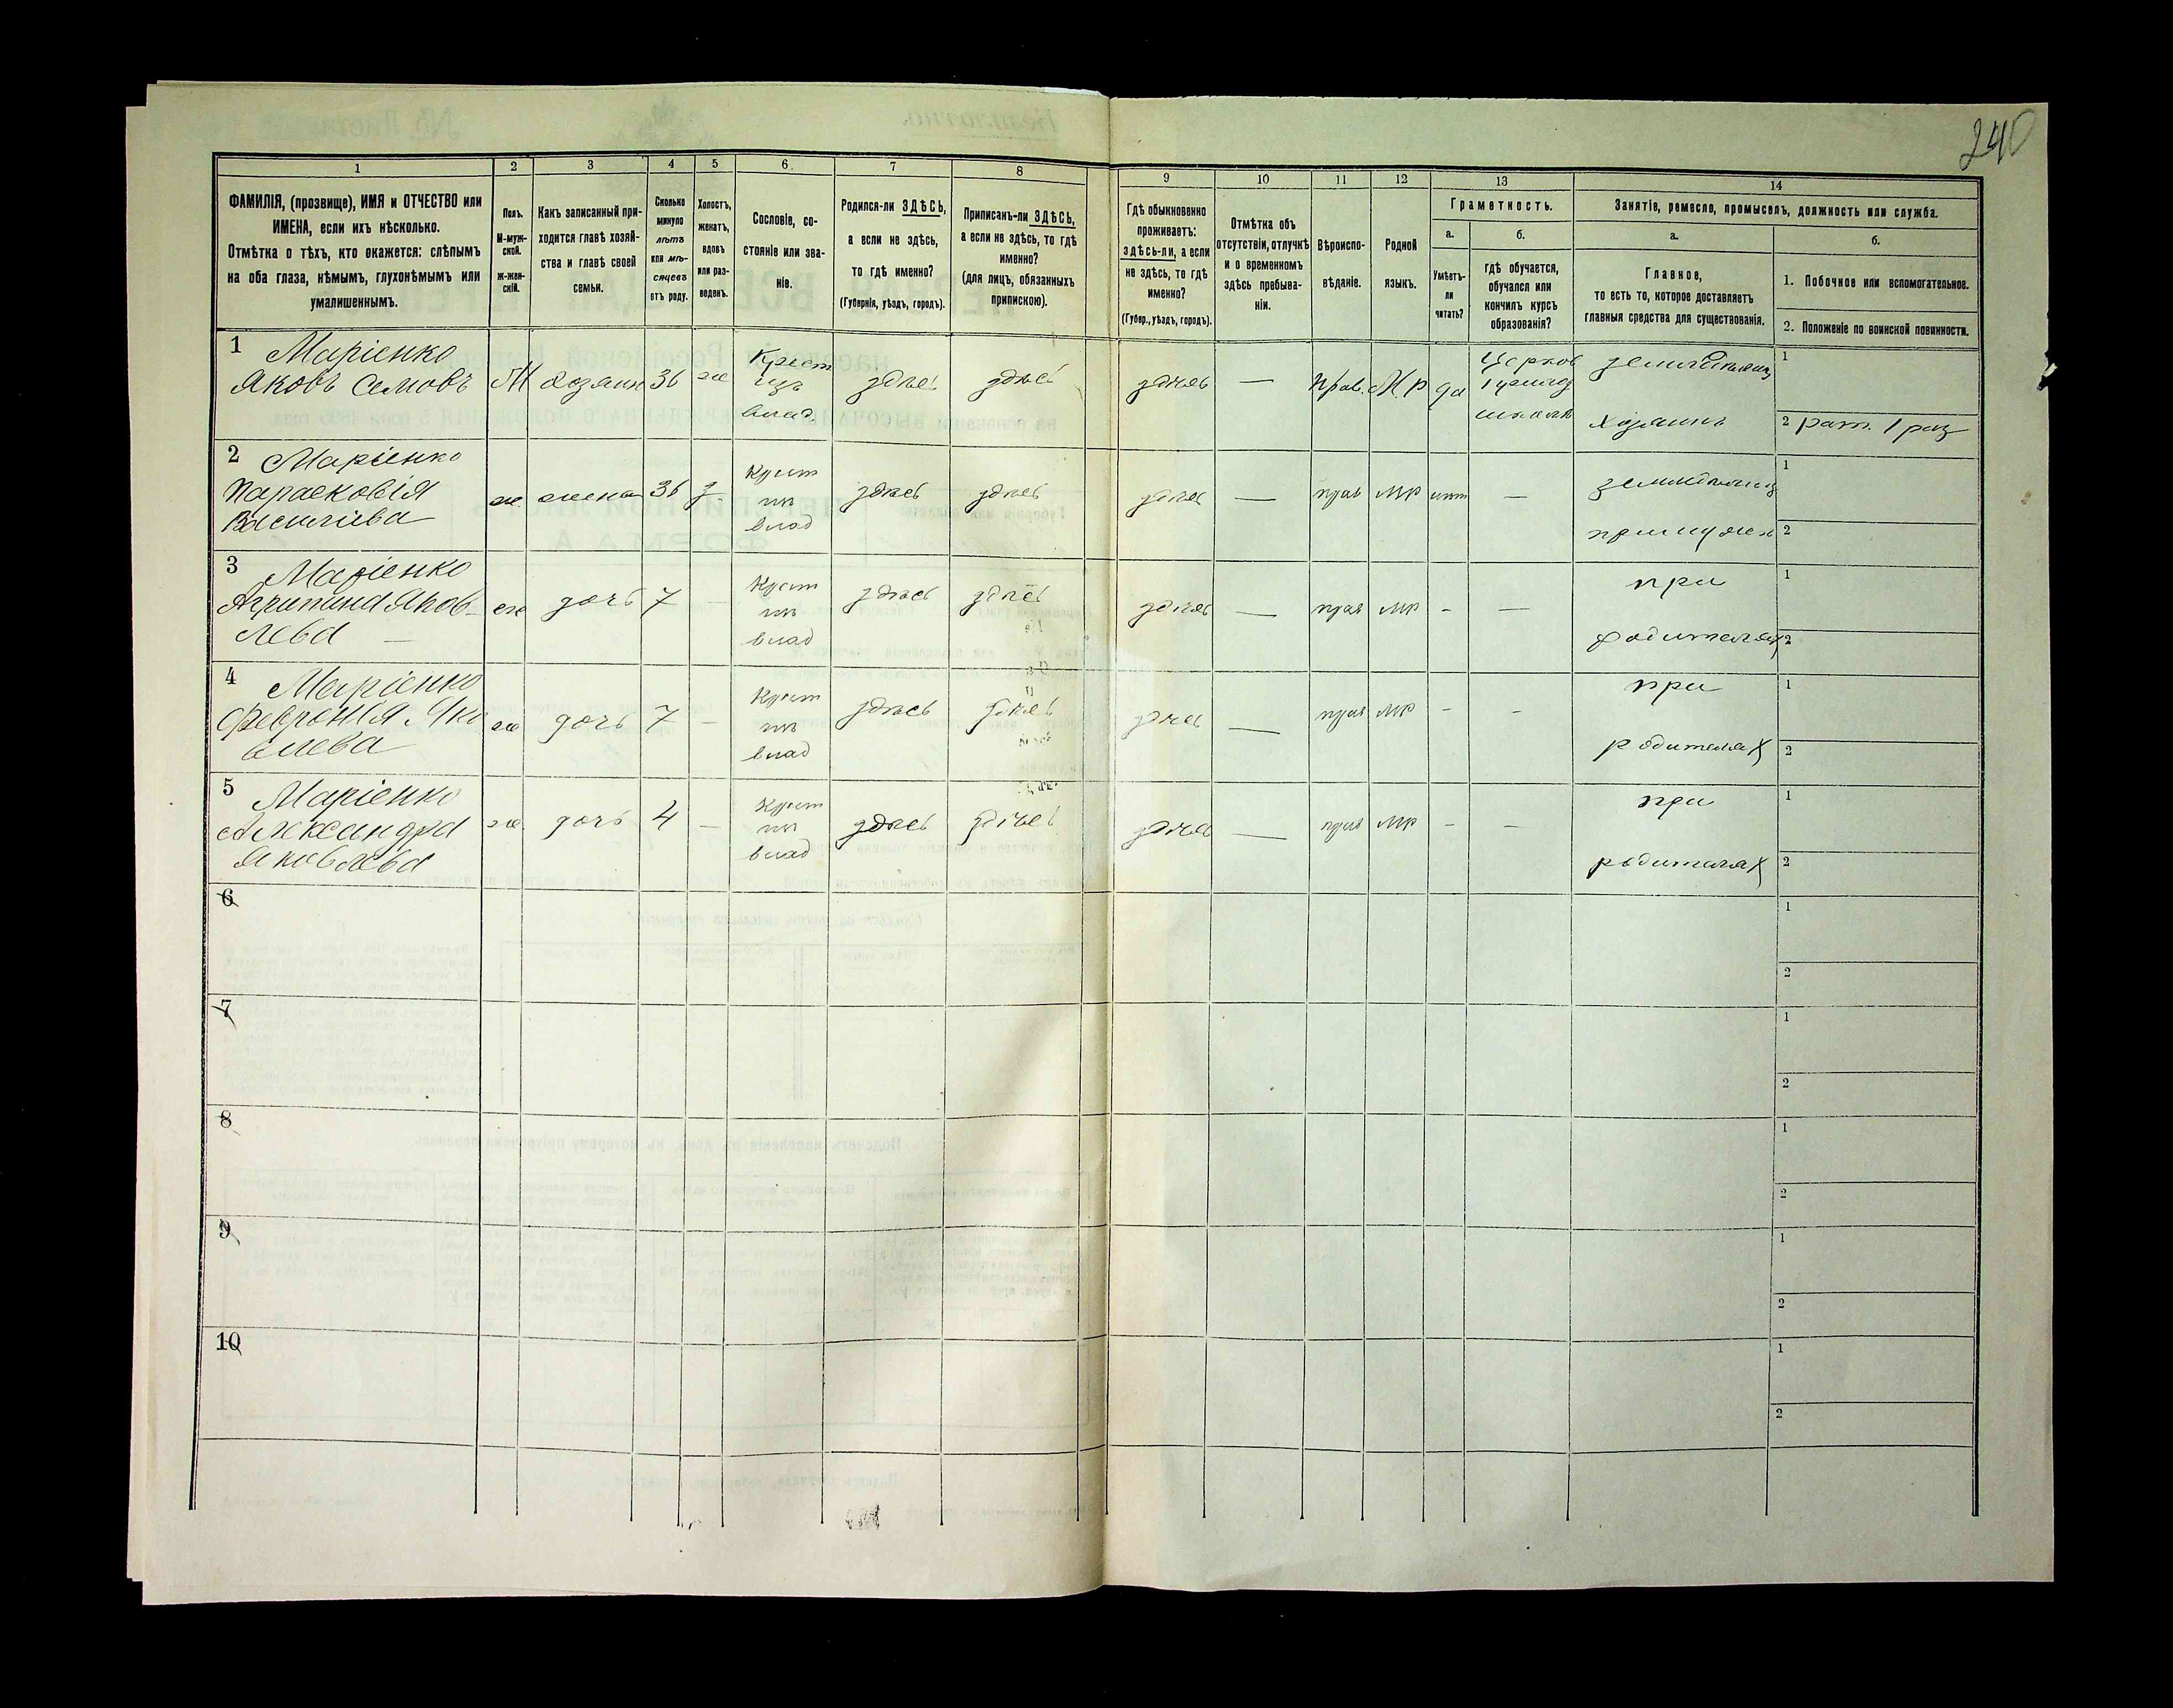 240
1
2
3
4
5
6
7
8
9
10
11
12
13
14
ФАМИЛІЯ, (прозвище), ИМЯ и ОТЧЕСТВО или
ИМЕНА, если ихъ нѣсколько.
Отмѣтка о тѣхъ, кто окажется: слѣпымъ
на оба глаза, нѣмымъ, глухонѣмымъ или
умалишеннымъ.
Полъ.
М-муж-
ской.
ж-жен-
скій.
Какъ записанный при-
ходится главѣ хозяй-
ства и главѣ своей
семьи.
Сколько
минуло
лѣтъ
или мѣ-
сяцевъ
отъ роду.
Холостъ,
женатъ,
вдовъ
или раз-
веденъ.
Сословіе, со-
стояніе или зва-
ніе.
Родился-ли ЗДѢСЬ,
а если не здѣсь,
то гдѣ именно?
(Губернія, уѣздъ, городъ).
Приписанъ-ли ЗДѢСЬ,
а если не здѣсь, то гдѣ
именно?
(для лицъ, обязанныхъ
припискою).
Гдѣ обыкновенно
проживаетъ:
здѣсь-ли, а если
не здѣсь, то гдѣ
именно?
(Губер., уѣздъ, городъ).
Отмѣтка объ
отсутствіи, отлучкѣ
и о временномъ
здѣсь пребыва-
ніи.
Вѣроиспо-
вѣданіе.
Родной
языкъ.
Грамотность.
а.
Умѣетъ-
ли
читать?
б.
гдѣ обучается,
обучался или
кончилъ курсъ
образованія?
Занятіе, ремесло, промыселъ, должность или служба.
а.
Главное,
то есть то, которое доставляетъ
главныя средства для существованія.
б.
1. Побочное или вспомогательное.
2. Положеніе по воинской повинности.
1 Маріенко
Яковъ Семовъ М хозяин 36 ж
Крест
изъ
влад
здѣсь здѣсь здѣсь — прав. М.р да
Церков
школа
хозяинъ
1
2 рат. 1 раз
2 Маріенко
Парасковія
Васильева
ж. жена 36 з.
Крест
изъ
влад
здѣсь здѣсь здѣсь — прав мр нет —
1
2
3 Маріенко
Агрипина Яков-
лева —
ж дочь 7 —
Крест
изъ
влад
здѣсь здѣсь здѣсь — прав мр - —
при
родителях
1
2
4 Маріенко
Февронія Яко
влева
ж дочь 7 —
Крест
изъ
влад
здѣсь здѣсь здѣсь — прав мр - -
при
родителях
1
2
5 Маріенко
Александра
Яковлева
ж. дочь 4 —
Крест
изъ
влад
здѣсь здѣсь здѣсь — прав мр - -
при
родителях
1
2
6
1
2
7
1
2
8
1
2
9
1
2
10
1
2